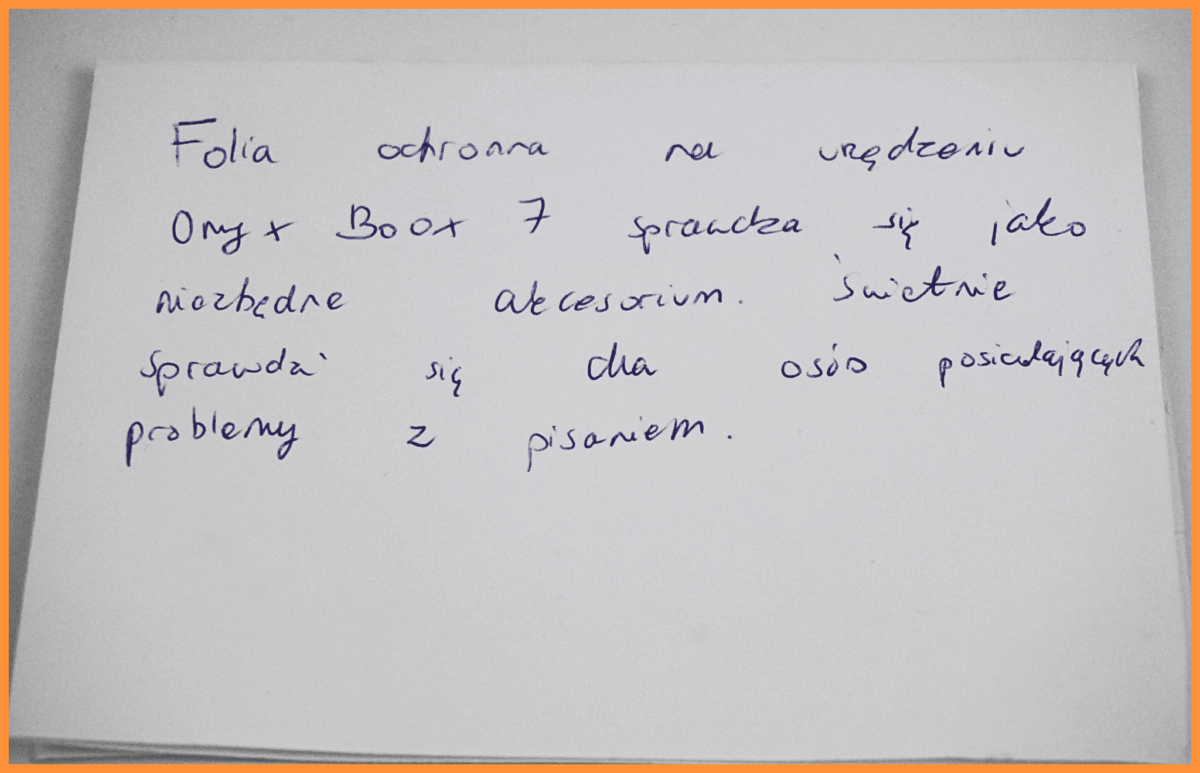 Folia ochronna na urędzeniu
Onyx Boox 7 sprawdza się jako
niezbędne akcesorium. świetnie
sprawdzi się dla osób posiadających
problemy z pisaniem.